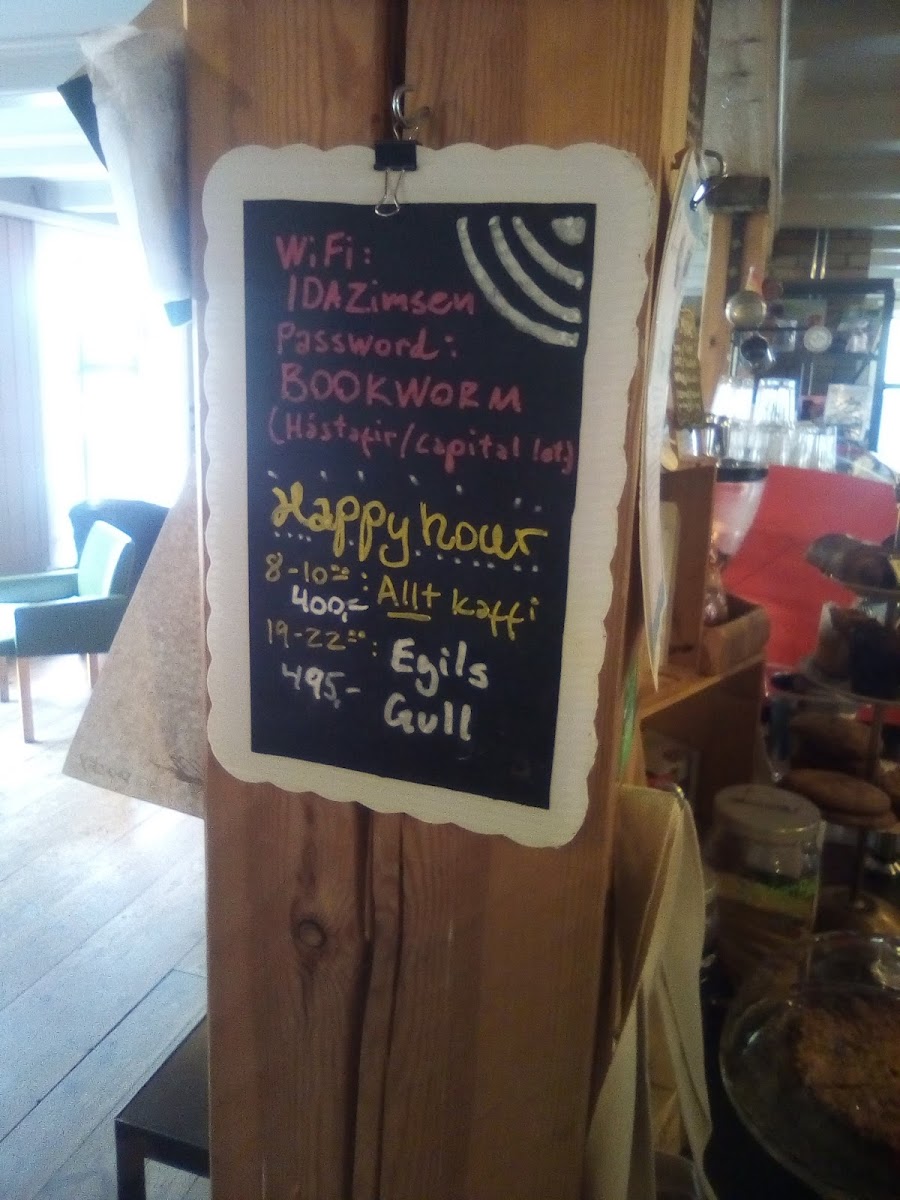 WiFi:
IDAZimsen
Password:
BOOKWORM
(Hástafir/capital let)
Happy hour
8-10⁰⁰: Allt kaffi
400,-
19-22⁰⁰: Egils
495,- Gull